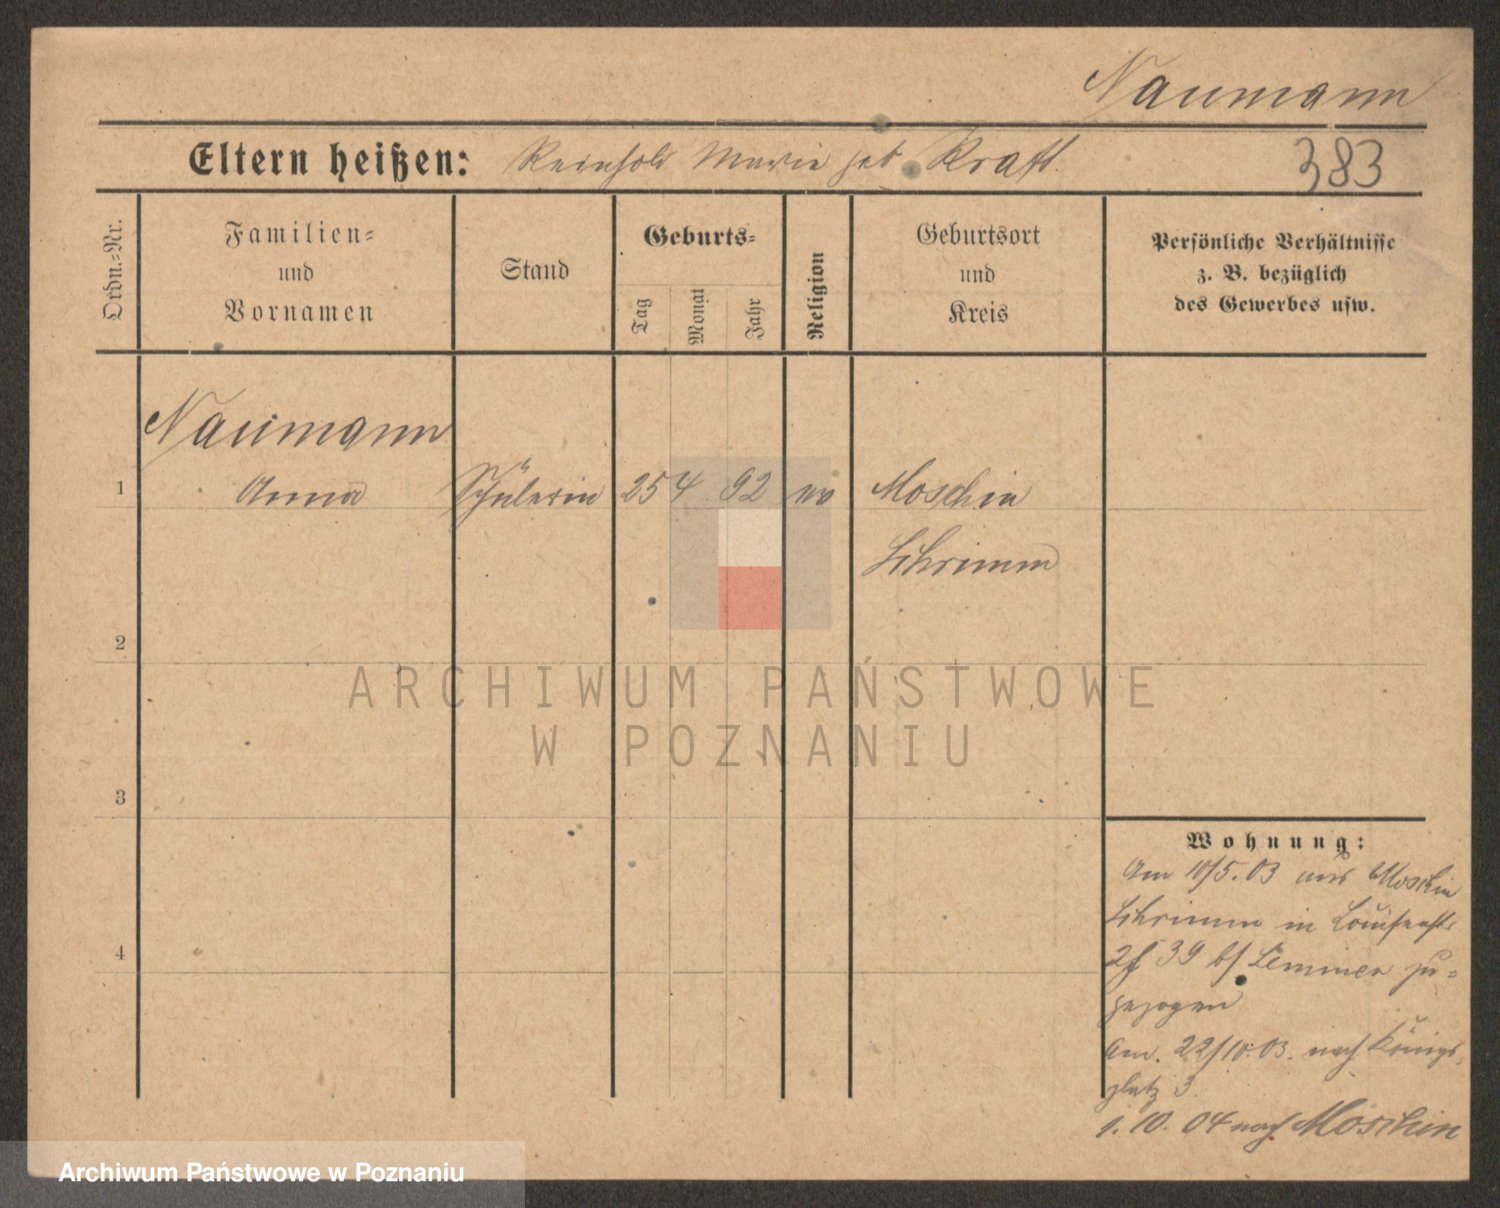 Naumann
Eltern heißen: Reinhold Marie geb Kraft.
383
Ordn.-Nr.
Familien-
und
Vornamen
Stand
Geburts-
Tag
Monat
Jahr
Religion
Geburtsort
und
Kreis
Persönliche Verhältnisse
z. B. bezüglich
des Gewerbes usw.
Naumann
1 Anna Schülerin 25 4 92 ev Moschin
Schrimm
2
3
4
Wohnung:
Am 10/5. 03 aus Moschin
Schrimm in Louisenstr
39 b/ zu-
gezogen
Am. 22/10. 03. nach Königs
platz 3
1. 10. 04 nach Moschin
ARCHIWUM PAŃSTWOWE
W POZNANIU
Archiwum Państwowe w Poznaniu